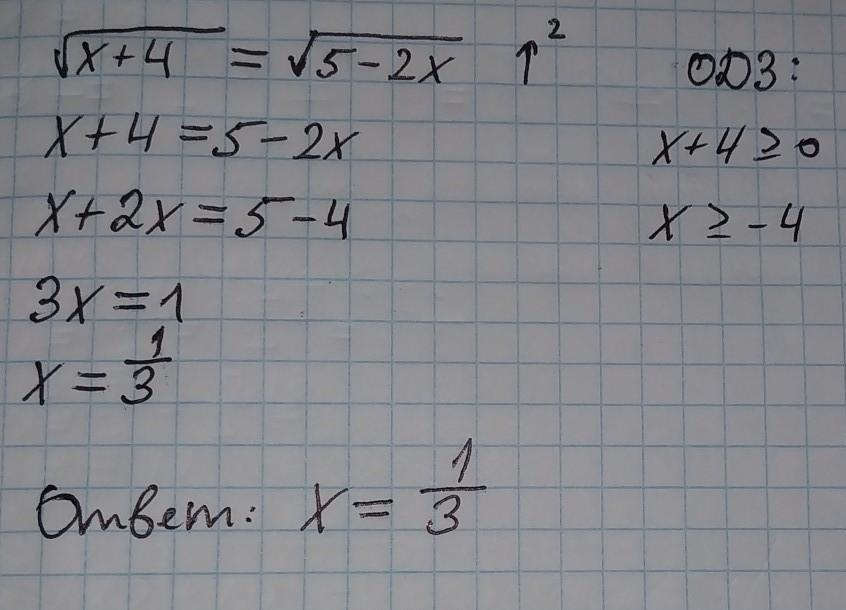 √x+4 = √5-2x ↑² ОДЗ:
x+4=5-2x x+4≥0
x+2x=5-4 x≥-4
3x=1
x=1/3
Ответ: x=1/3